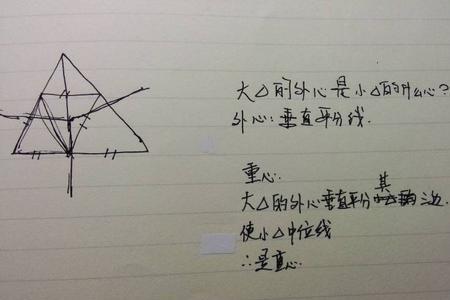 大△的外心是小△的什么心?
外心:垂直平分线.
重心.
大△的外心垂直平分其三边.
使小△中位线
∴是垂心.